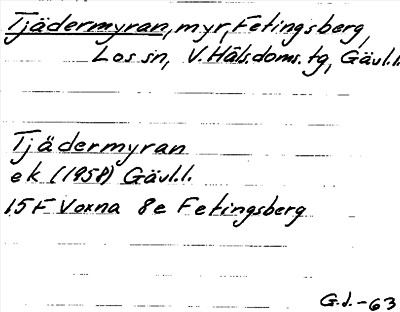 Tjädermyran, myr, Fetingsberg,
Los sn, V. Häls. doms. tg, Gävl.l.
Tjädermyran
ek (1958) Gävl.l.
15F Voxna 8e Fetingsberg
G.J.-63